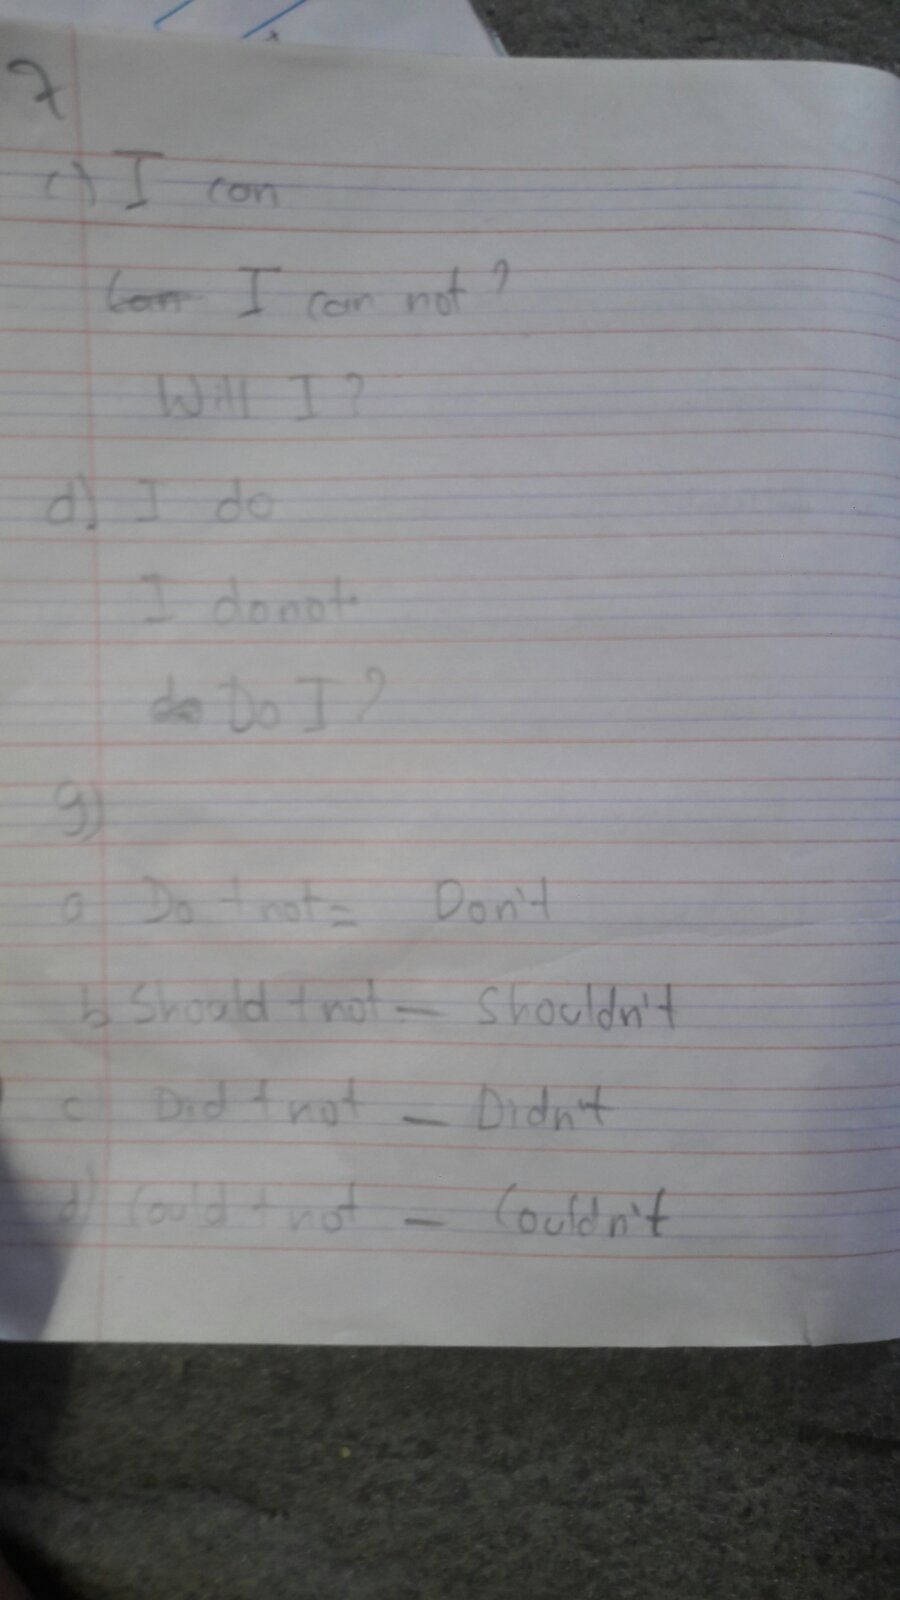 7
c) I can
Can I can not?
Will I?
d) I do
I donot.
do Do I?
9)
a Do + not = Don't
b Should + not — Shouldn't
c Did + not — Didn't
d) Could + not — Couldn't